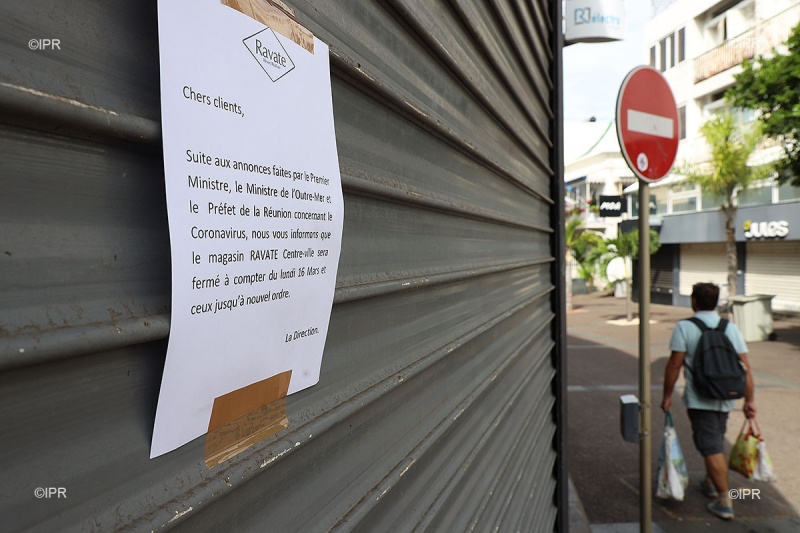 ©IPR
Ravate
Chers clients,
Suite aux annonces faites par le Premier
Ministre, le Ministre de l'Outre-Mer et
le Préfet de la Réunion concernant le
Coronavirus, nous vous informons que
le magasin RAVATE Centre-ville sera
fermé à compter du lundi 16 Mars et
ceux jusqu'à nouvel ordre.
La Direction.
electro
JULES
©IPR
©IPR